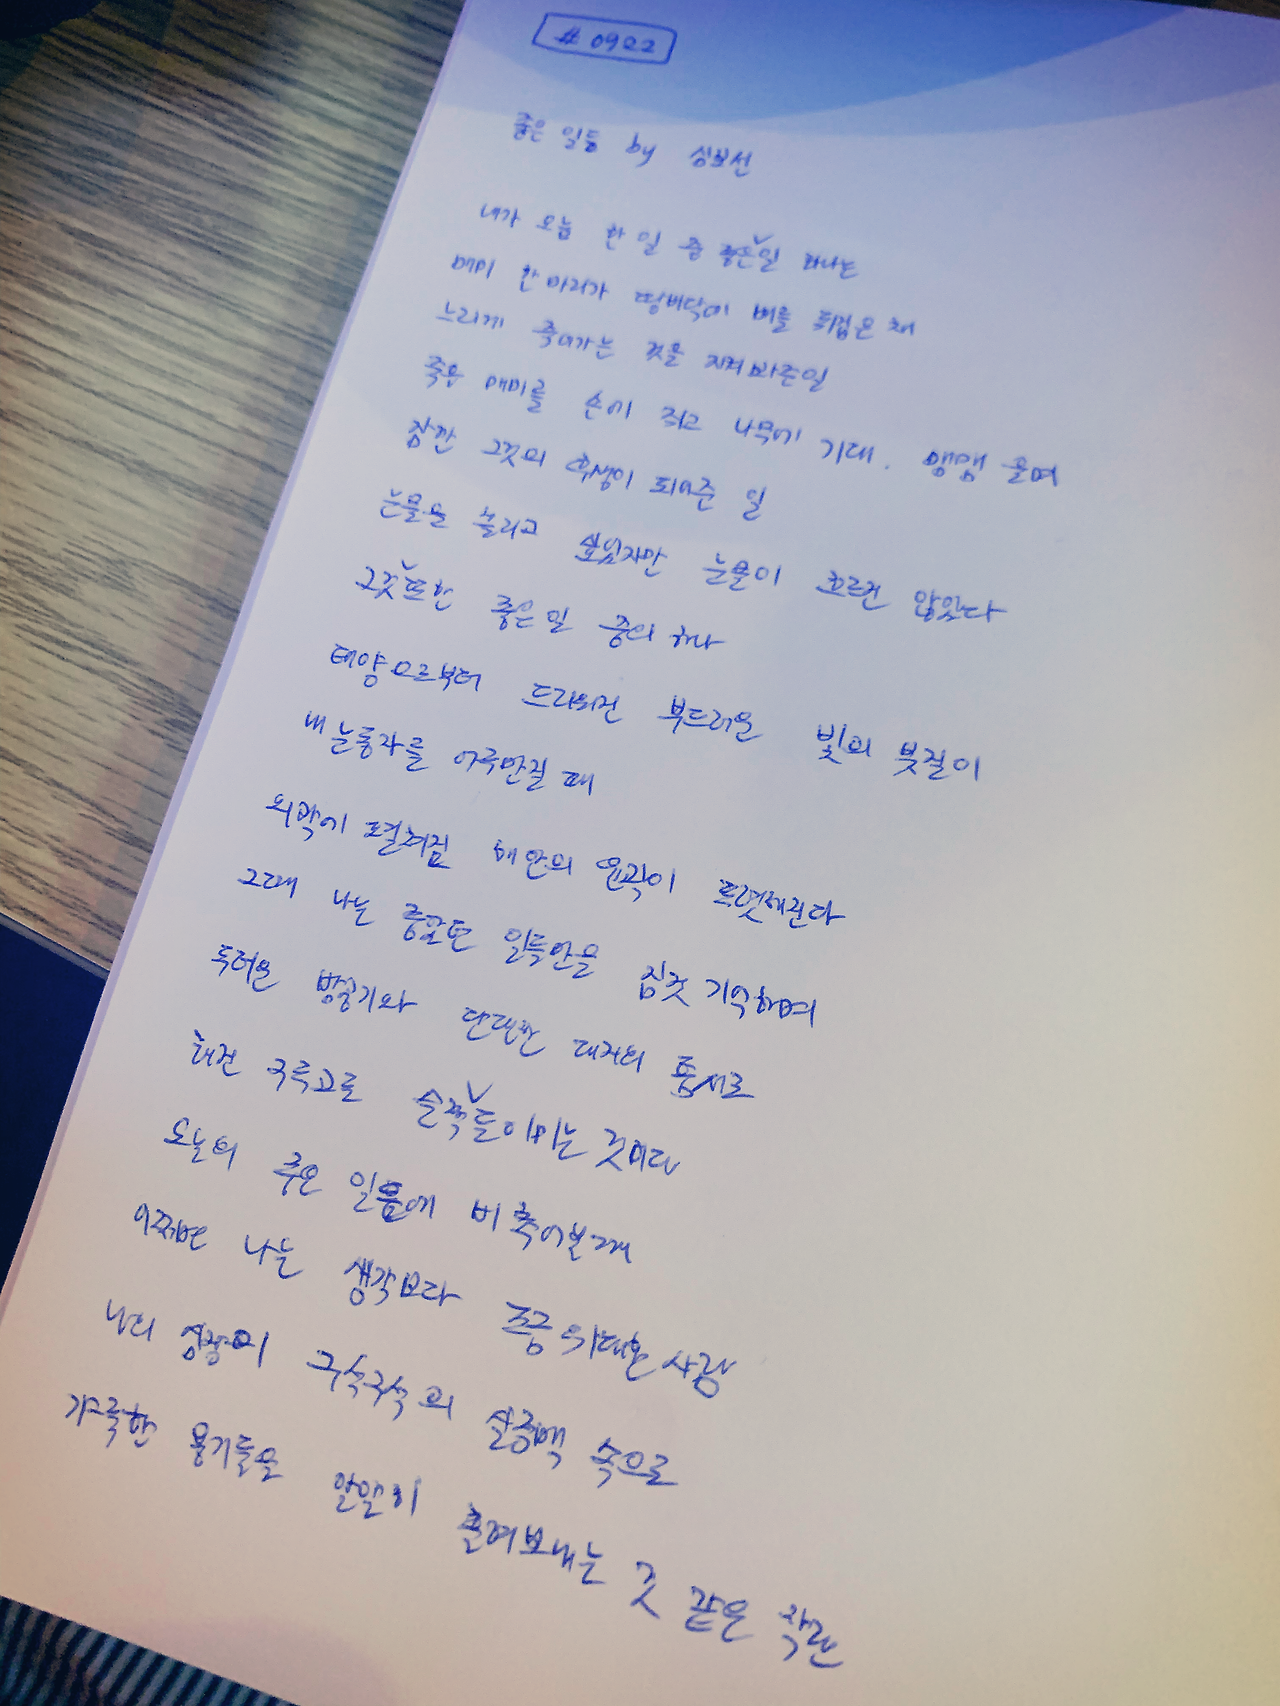 #0922
좋은 일들 by 심보선
내가 오늘 한 일 중 좋은 일 하나는
매미 한 마리가 땅바닥에 배를 뒤집은 채
느리게 죽어가는 것을 지켜봐준 일
죽은 매미를 손에 쥐고 나무에 기대, 맴맴 울며
잠깐 그것의 후생이 되어준 일
눈물을 흘리고 싶었지만 눈물이 흐르진 않았다
그것 또한 좋은 일 중의 하나
태양으로부터 드리워진 부드러운 빛의 붓질이
내 눈동자를 어루만질 때
외곽에 펼쳐짐 해안의 윤곽이 또렷해진다
그때 나는 중요한 일들만을 짐짓 기억하며
두터운 밤공기와 단단한 대지의 틈새로
해진 구름을 슬쩍 들이미는 것이다
오늘의 좋은 일들에 비추어볼 때
어쩌면 나는 생각보다 조금 위대한 사람
나의 심장이 구석구석의 실핏맥 속으로
갸륵한 용기들을 알알이 흘려보내는 것 같은 착란